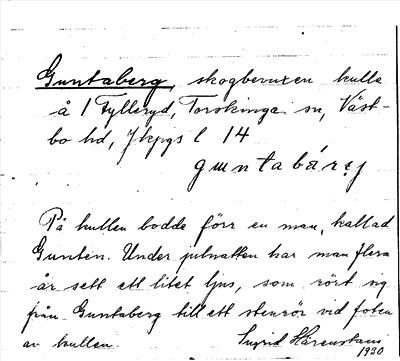 Guntaberg, skogbevuxen kulle
å 1 Fylleryd, Torskinge sn, Väst-
bo hd, Jkpgs l 14
guntabárej
På kullen bodde förr en man, kallad
Gunten. Under julnatten har man flera
år sett ett litet ljus, som rört sig
från Guntaberg till ett stenrör vid foten
av kullen.
Ingrid Hårenstam
1930